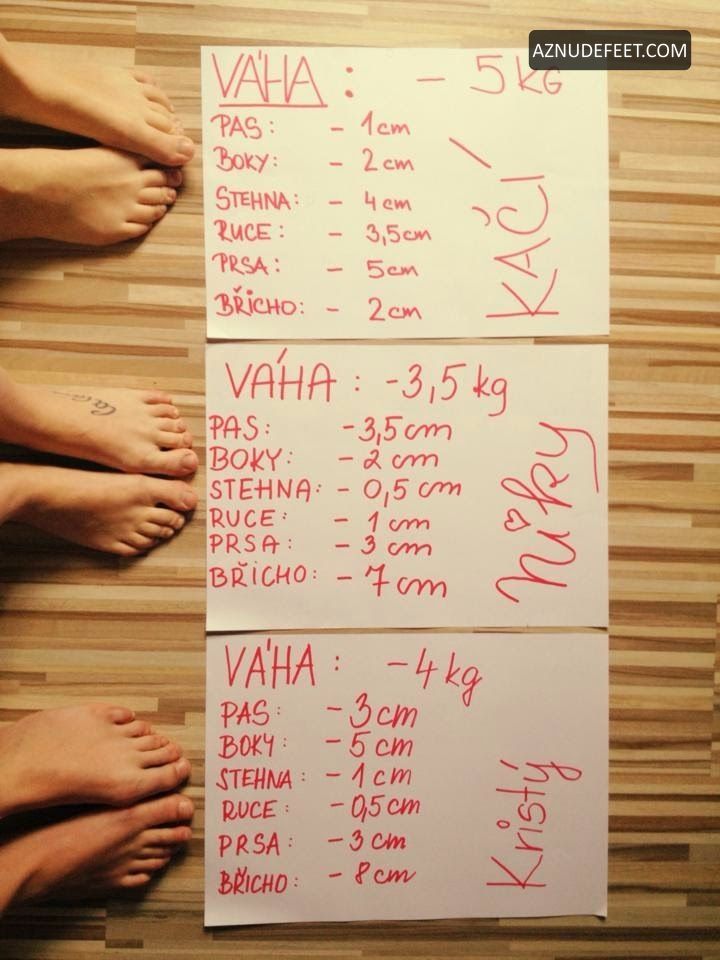 AZNUDEFEET.COM
VÁHA : - 5 KG
PAS: - 1cm
BOKY: - 2 cm
STEHNA: - 4 cm
RUCE: - 3,5cm
PRSA: - 5cm
BŘICHO: - 2cm
KAČÍ
VÁHA : -3,5 kg
PAS: -3,5 cm
BOKY: - 2 cm
STEHNA: - 0,5 cm
RUCE: - 1 cm
PRSA: - 3 cm
BŘICHO: - 7 cm
Niky
VÁHA : - 4 kg
PAS: - 3 cm
BOKY: - 5 cm
STEHNA: - 1 cm
RUCE: - 0,5 cm
PRSA: - 3 cm
BŘICHO: - 8 cm
Kristý